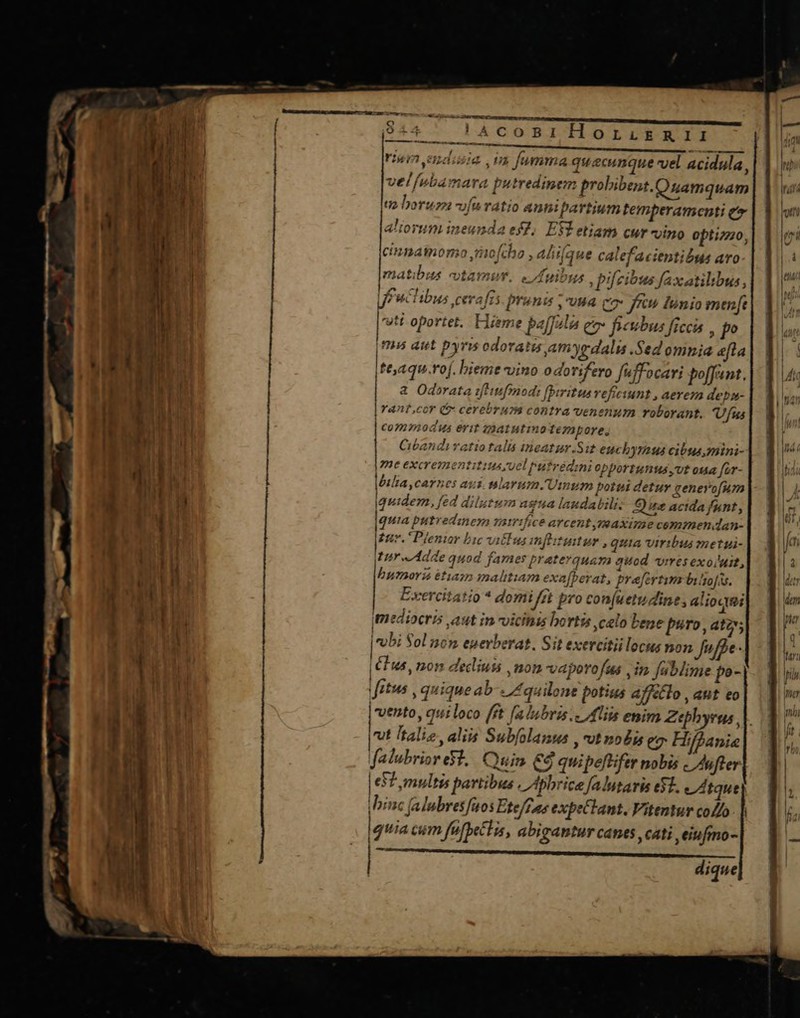 844 IACOBI HOLLERII
rium, endivia, in summa quæcunque vel acidula,
vel subamara putredinem prohibent. Quamquam
in horum usu ratio anni partium temperamenti &
aliorum ineunda est. Est etiam cur vino optimo,
cinnamomo, moscho, aliisque calefacientibus aro-
matibus utamur. Avibus, piscibus saxatilibus,
fructibus, cerasis, prunis, uva & ficu Iunio mense
uti oportet. Hieme passulis & ficubus siccis, po
mis aut pyris odoratis, amygdalis. Sed omnia asta
te, aqu. ros. hieme vino odorifero suffocari possunt.
a Odorata istiusmodi spiritus reficiunt, aerem depu-
rant, cor & cerebrum contra venenum roborant. Usus
commodus erit matutino tempore.
Cibandi ratio talis ineatur. Sit euchymus cibus, mini-
me excrementitius, vel putredini opportunus, ut ova sor-
bilia, carnes avi. ularum. Vinum potui detur generosum
quidem, sed dilutum aqua laudabili. Quæ acida sunt,
quia putredinem mirifice arcent, maxime commendan-
tur. Plenior hic victus instituitur, quia viribus metui-
tur. Adde quod fames præterquam quod vires exoluit,
humoris etiam malitiam exasperat, præsertim biliosis.
Exercitatio * domi fit pro consuetudine, alioqui
mediocris, aut in vicinis hortis, cælo bene puro, atq;
ubi Sol non everberat. Sit exercitii locus non suspe-
ctus, non declivis, non vaporosus, in sublime po-
situs, quique ab Aquilone potius affecto, aut eo
vento, qui loco fit salubris. Aliis enim Zephyrus,
ut Italiæ, aliis Subsolanus, ut nobis & Hispaniæ
salubrior est. Quin & qui pestifer nobis Auster
est, multis partibus Aphricæ salutaris est. Atque
hinc salubres suos Etesias expectant. Vitentur collo-
quia cum suspectis, abigantur canes, cati, eiusmo-
dique